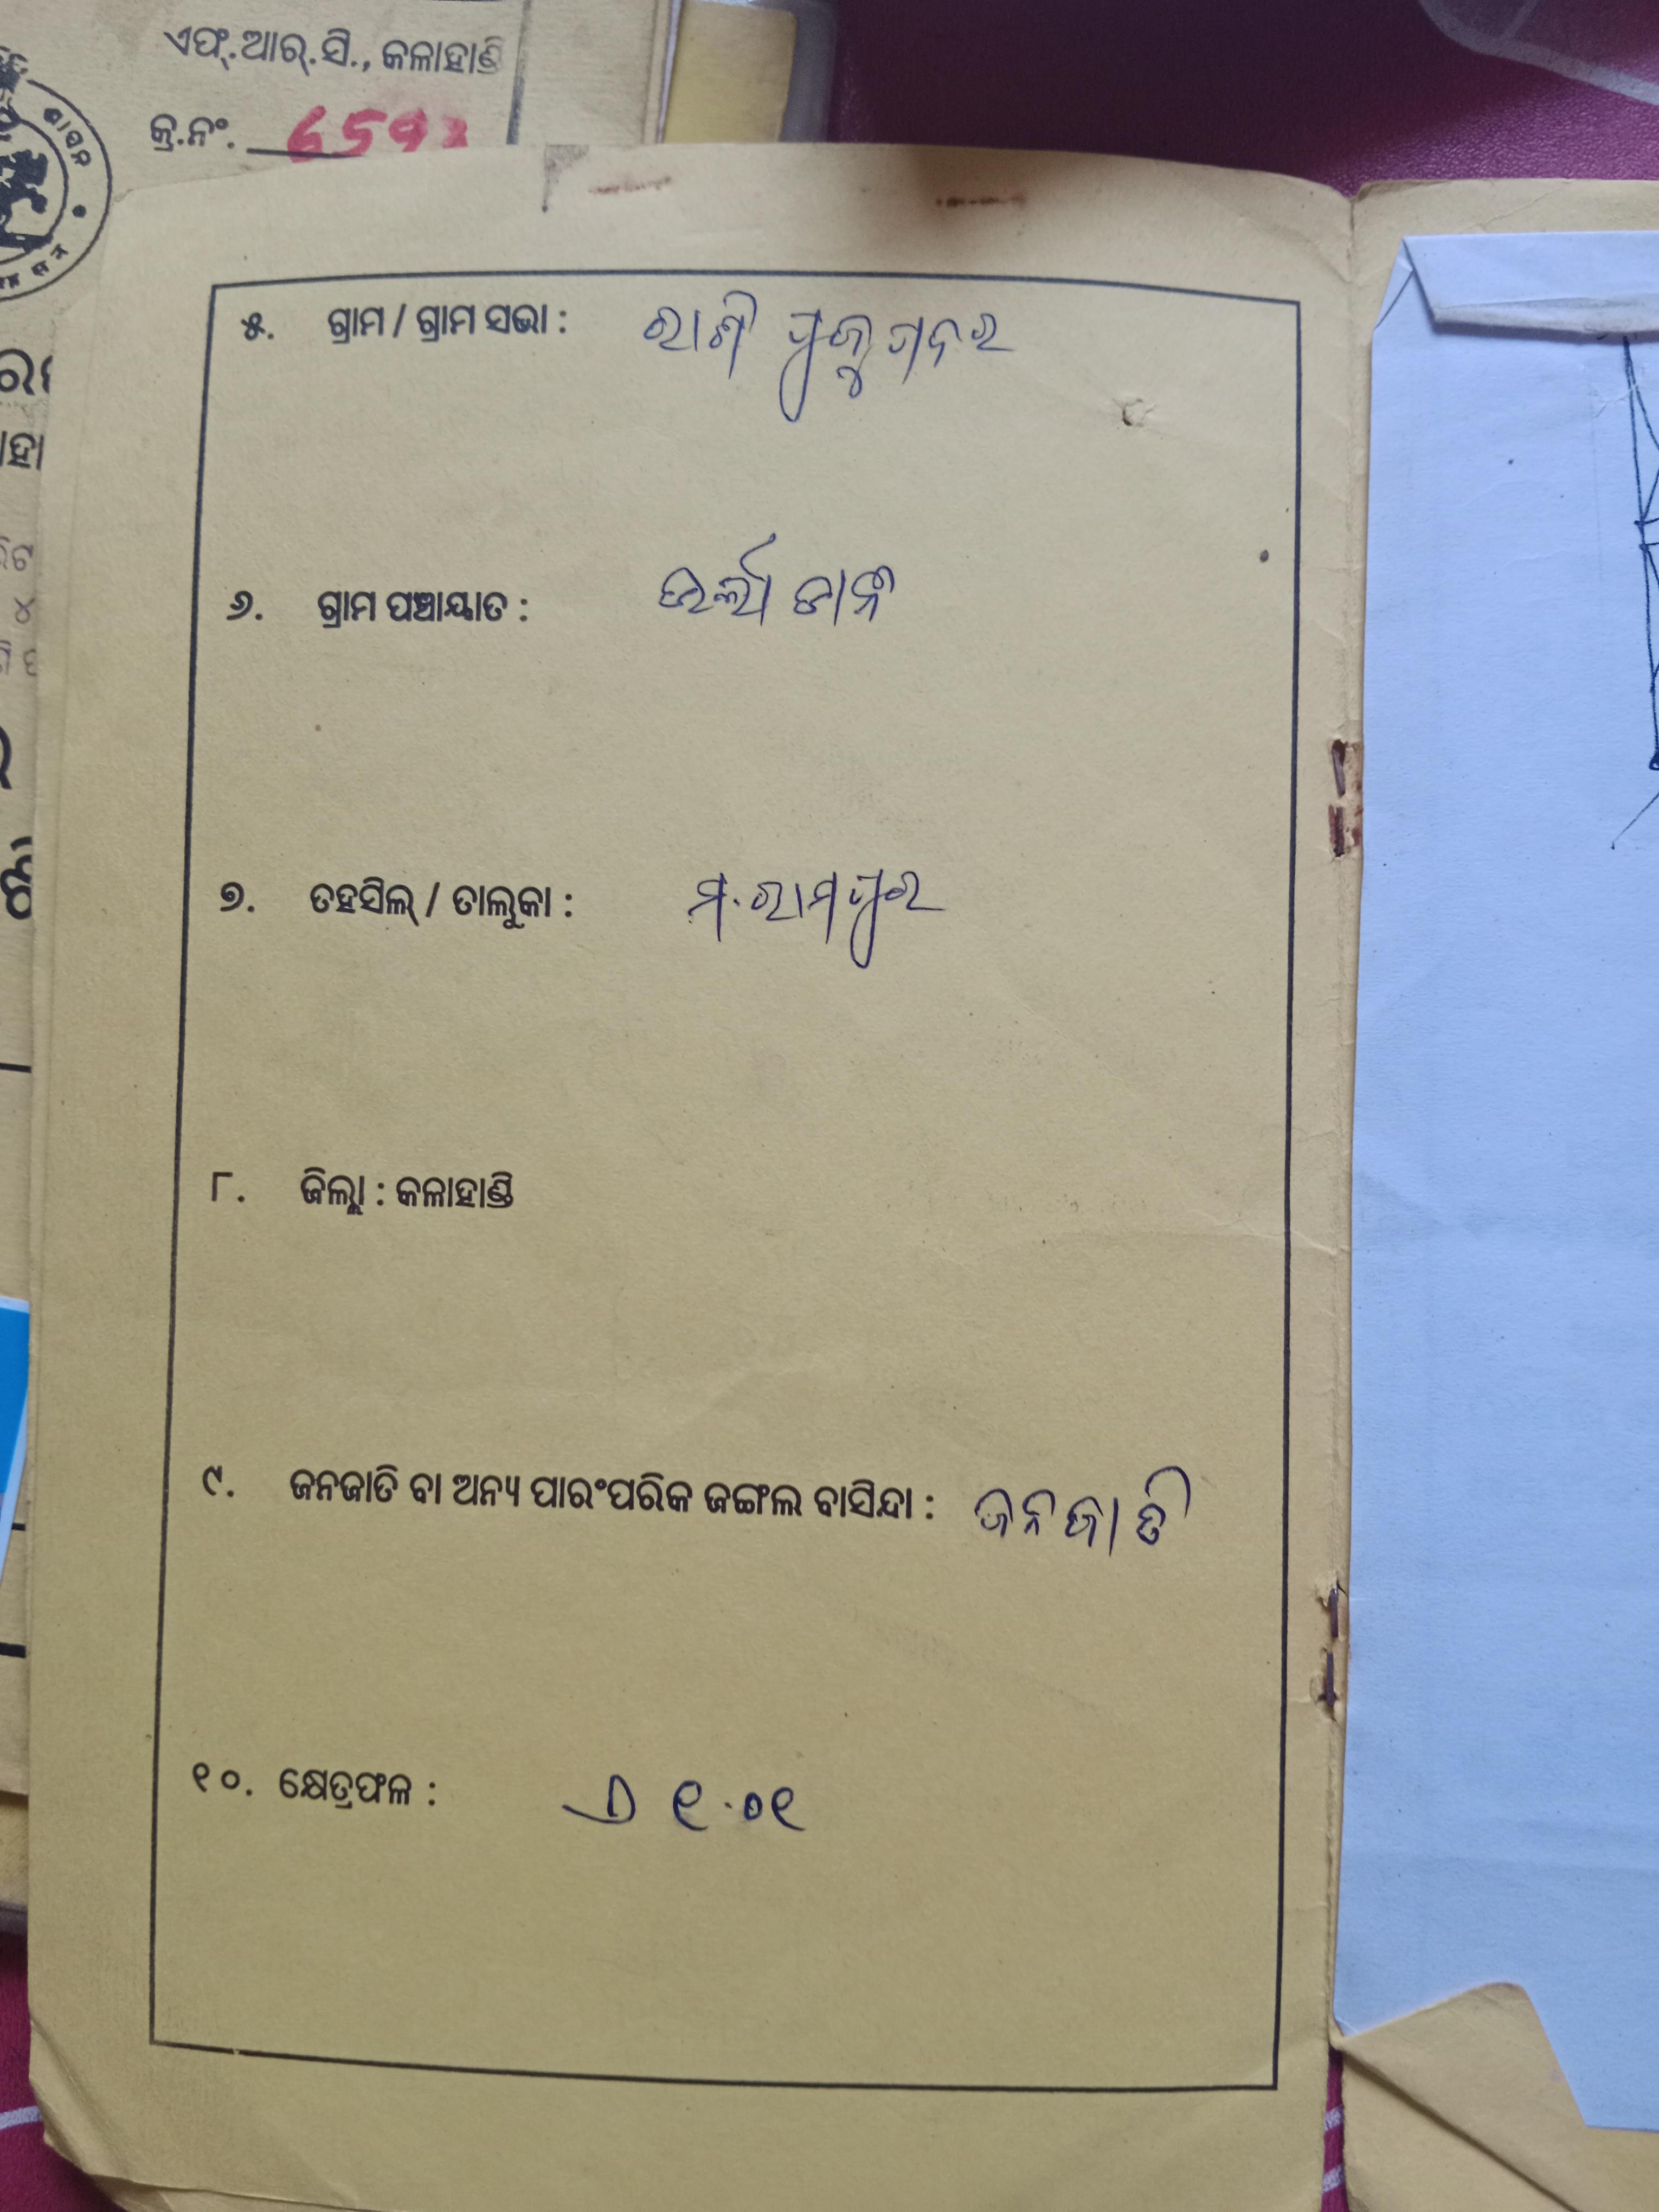 ଏଫ୍.ଆର୍.ସି., କଳାହାଣ୍ଡି
କ୍ର.ନଂ. 659
ଶାସନ
୫. ଗ୍ରାମ / ଗ୍ରାମ ସଭା : ରାଣୀ
୬. ଗ୍ରାମ ପଞ୍ଚାୟାତ :
୭. ତହସିଲ୍ / ତାଲୁକା : ମ.ରାମପୁର
୮. ଜିଲ୍ଲା : କଳାହାଣ୍ଡି
୯. ଜନଜାତି ବା ଅନ୍ୟ ପାରଂପରିକ ଜଙ୍ଗଲ ବାସିନ୍ଦା : ଜନଜାତି
୧୦. କ୍ଷେତ୍ରଫଳ : ୧.୦୧